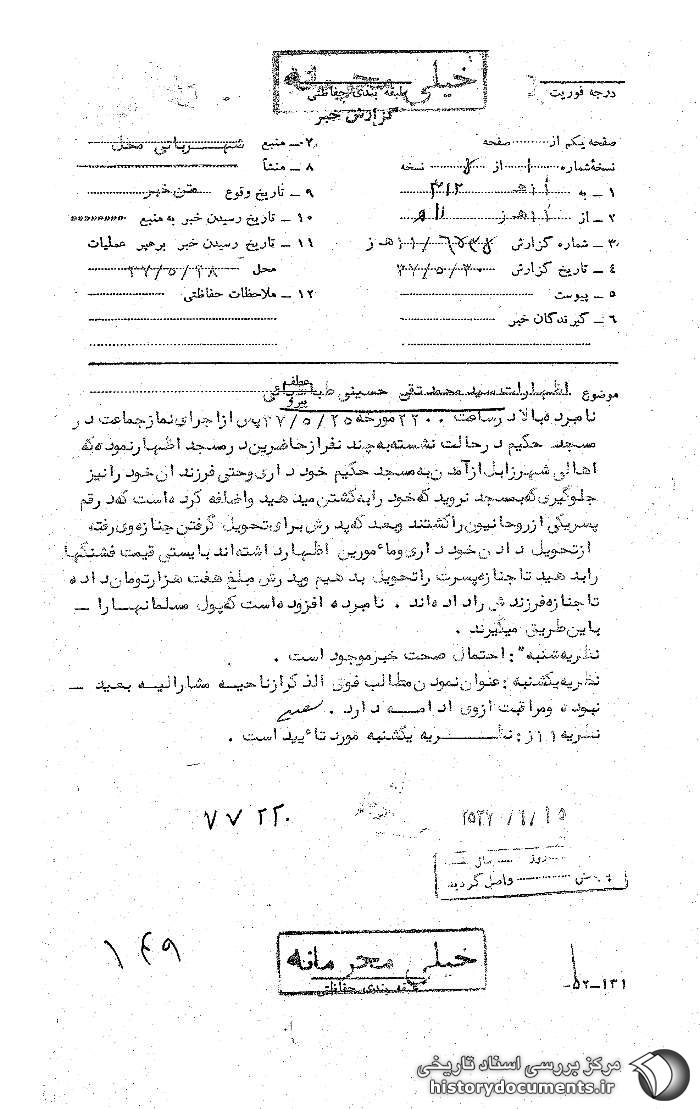 خیلی محرمانه
طبقه بندی حفاظتی
درجه فوریت
گزارش خبر
صفحه یکم از صفحه
نسخه شماره ۱ از نسخه
۱ ـ به ۳۱۲ ه‍
۲ ـ از ۱۱ ه‍ ز
۳ ـ شماره گزارش ه‍ ز
۴ ـ تاریخ گزارش ۳۷/۵/۳۰
۵ ـ پیوست
۶ ـ گیرندگان خبر
۷ ـ منبع شهربانی محل
۸ ـ منشأ
۹ ـ تاریخ وقوع متن خبر
۱۰ ـ تاریخ رسیدن خبر به منبع
۱۱ ـ تاریخ رسیدن خبر برهبر عملیات
محل ۳۷/۵/۲۸
۱۲ ـ ملاحظات حفاظتی
موضوع اظهارات سید محمد تقی حسینی طباطبائی
عطف
پیرو
نامبرده بالا در ساعت ۲۲۰۰ مورخه ۳۷/۵/۲۵ پس از اجرای نماز جماعت در
مسجد حکیم در حالت نشسته به چند نفر از حاضرین در مسجد اظهار نموده که
اهالی شهر زابل از آمدن به مسجد حکیم خود داری وحتی فرزندان خود را نیز
جلوگیری که بمسجد نروید که خود را به کشتن میدهید واضافه کرده است که در قم
پسر یکی از روحانیون را کشتند وبعد که پدرش برای تحویل گرفتن جنازه وی رفته
از تحویل دادن خود داری ومأمورین اظهار داشته اند بایستی قیمت فشنگها
را بدهید تا جنازه پسرت را تحویل بدهیم وپدرش مبلغ هفت هزار تومان داده
تا جنازه فرزندش را داده اند . نامبرده افزوده است که پول مسلمانها را ـ
باین طریق میگیرند .
نظریه شنبه " : احتمال صحت خبر موجود است .
نظریه یکشنبه : عنوان نمودن مطالب فوق الذکر از ناحیه مشارالیه بعید ـ
نبوده ومراقبت ازوی ادامه دارد .
نظریه ۱۱ ز : نظریه یکشنبه مورد تائید است .
۷۷۲۲۰
۲۵۳۷/۶/۱۵
روز سال
واصل گردید
۱۴۹
خیلی محرمانه
طبقه بندی حفاظتی
۵۲ـ۱۳۱
مرکز بررسی اسناد تاریخی
historydocuments.ir